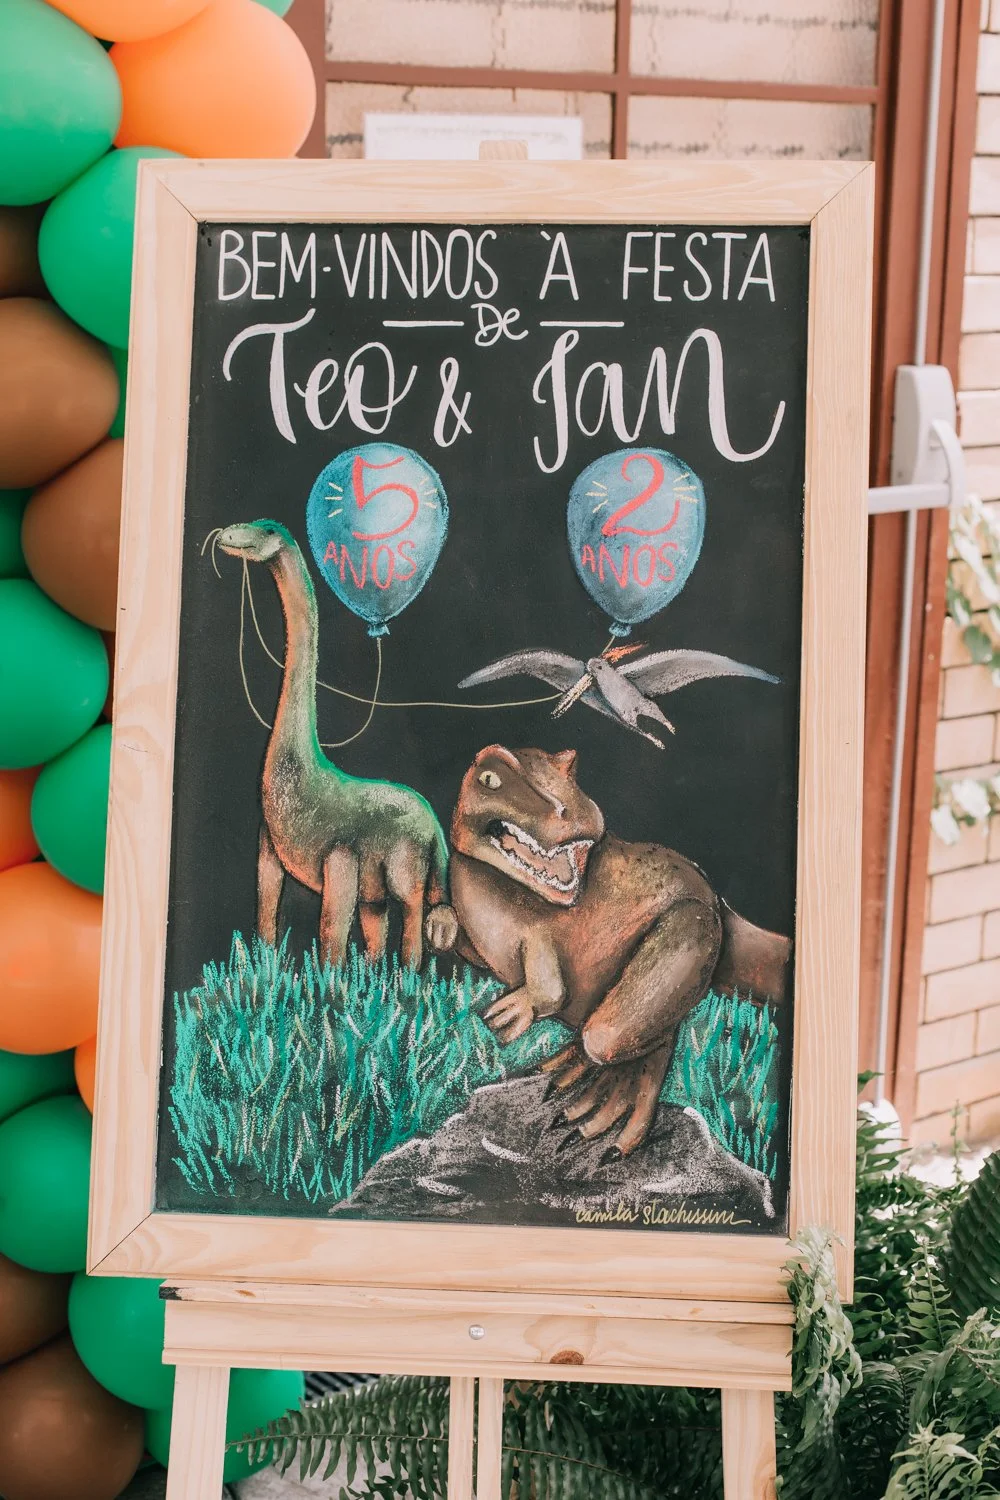 BEM-VINDOS À FESTA
DE
Teo & Jan
5
ANOS
2
ANOS
camila stachissini